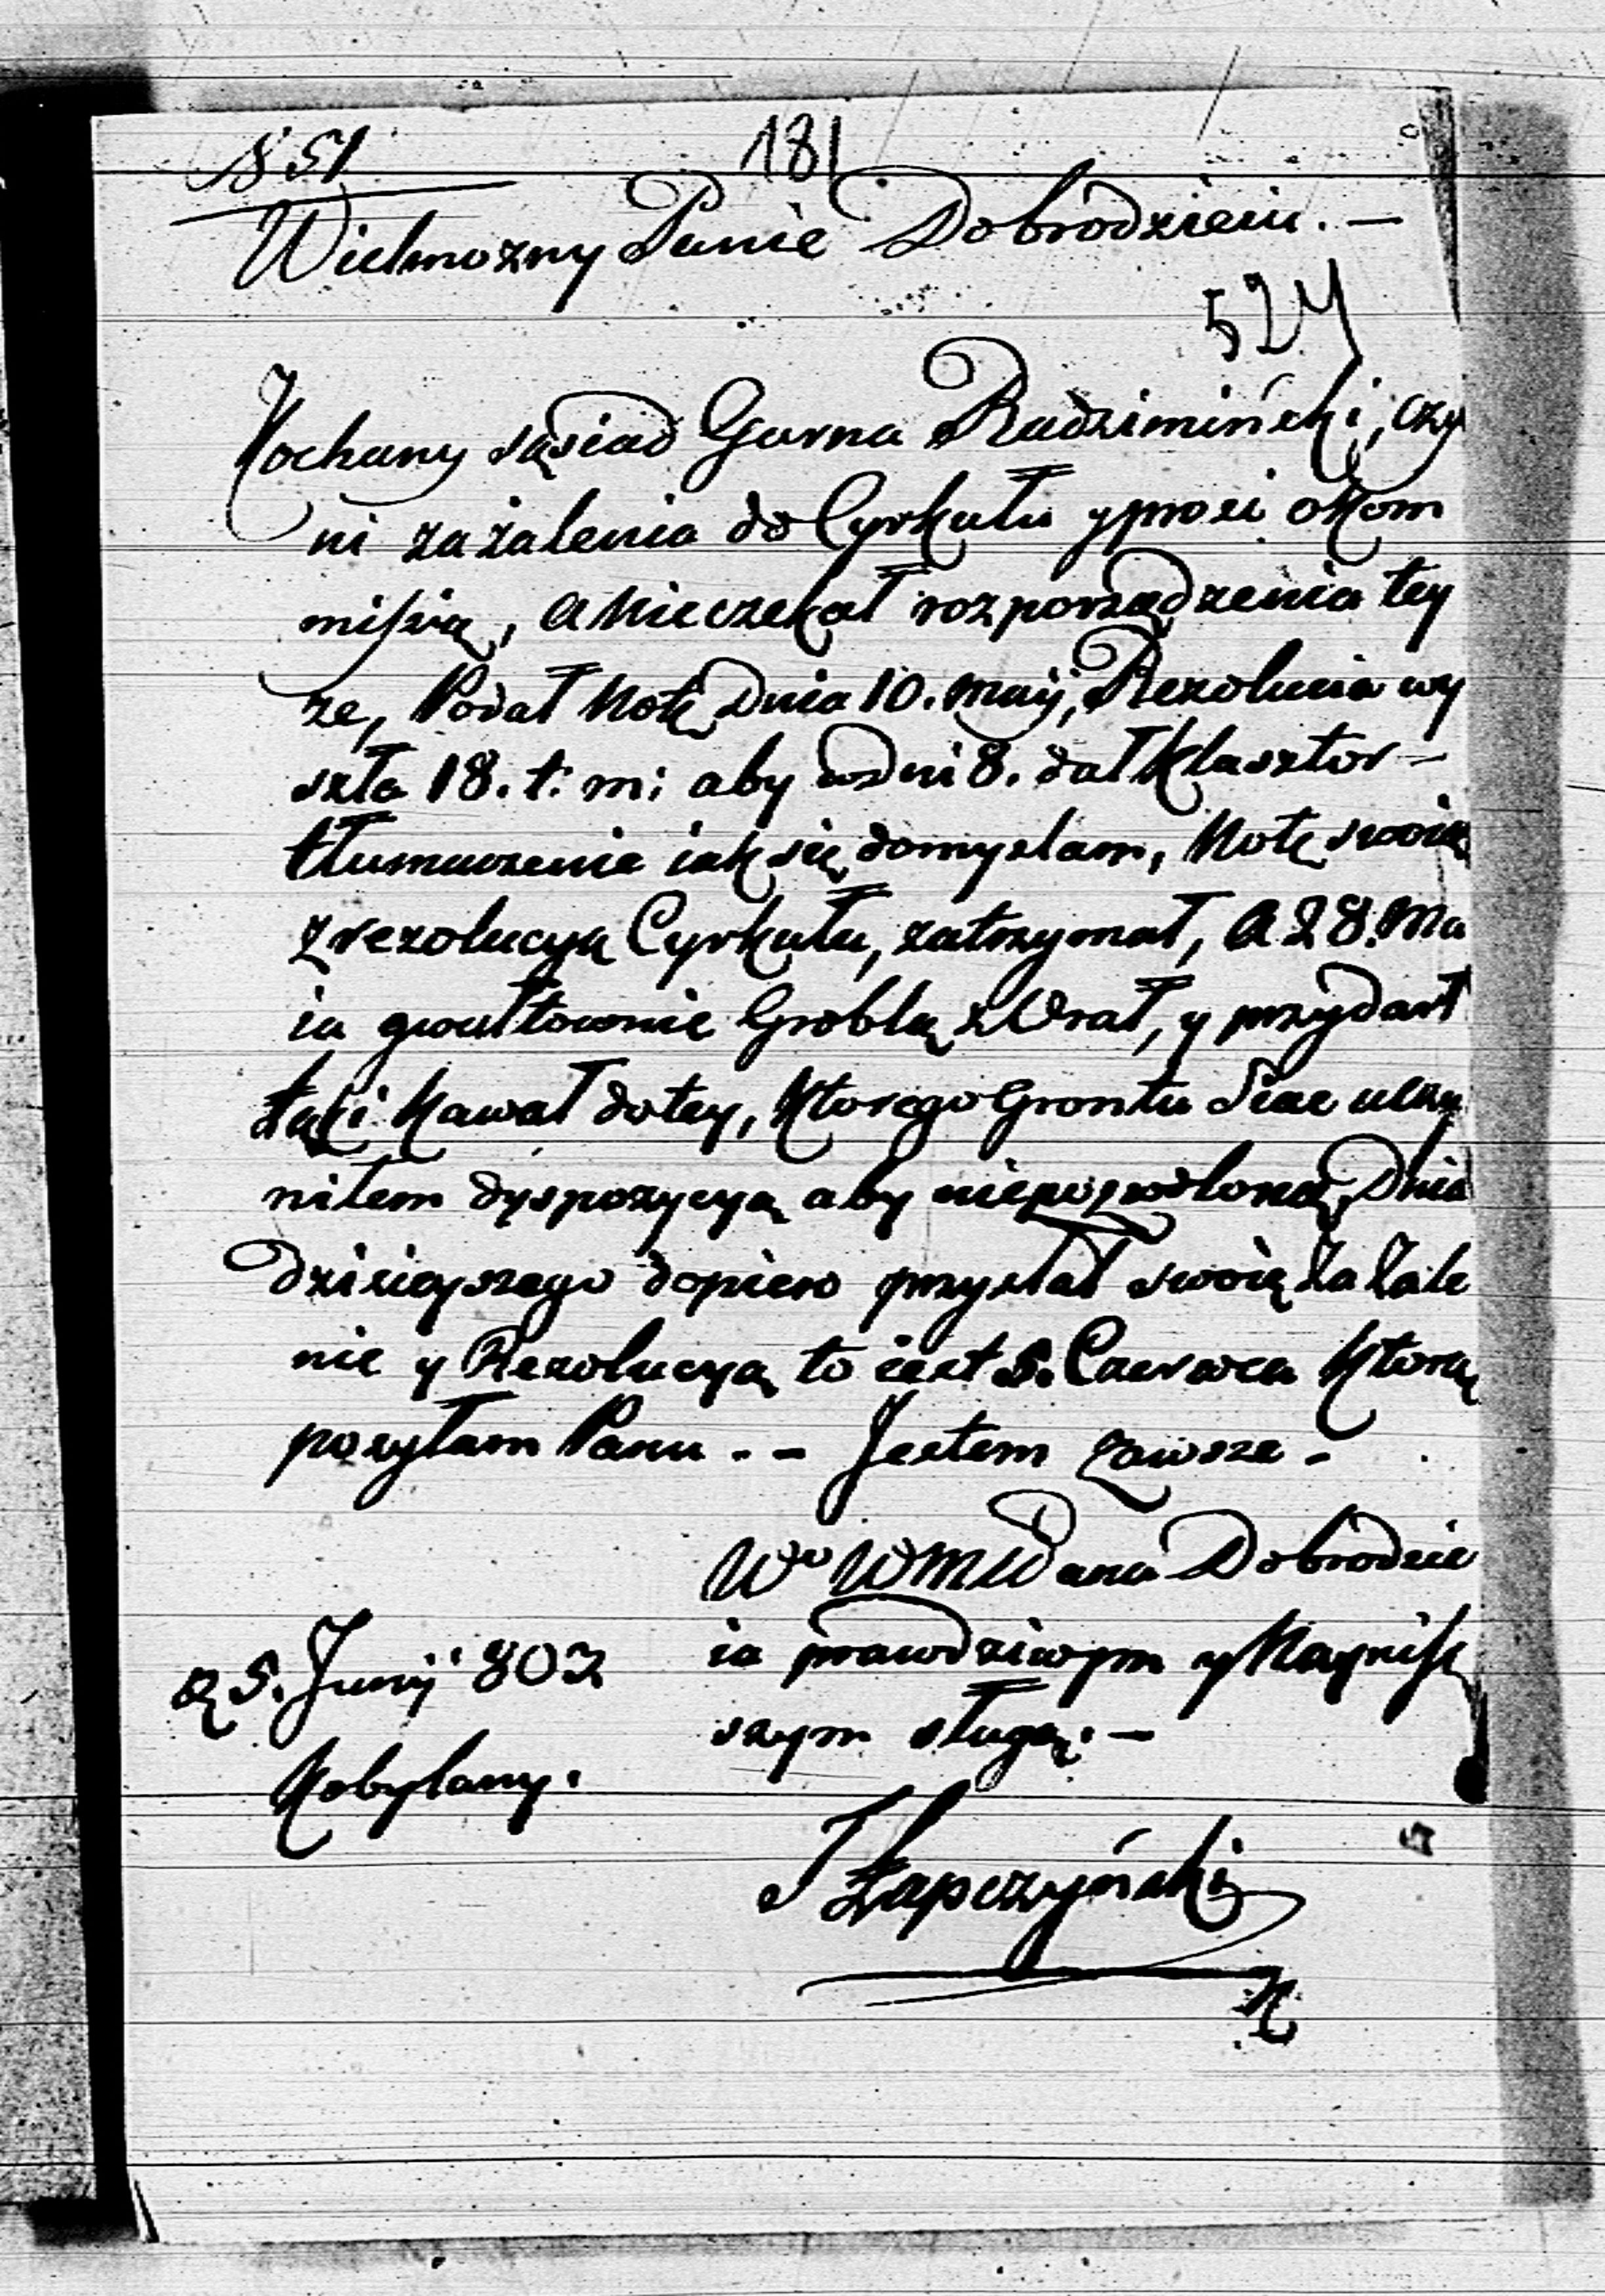 N 51
181
Wielmozny Panie Dobrodzieiu. —
524
Kochany sąsiad Gurna Radzimiński, czy
ni zażalenia do Cyrkułu y prosi o Kom
missią, a nieczekał rozporządzenia tey
ze, Podał Notę Dnia 10. Maij, Rezolucia wy
szła 18. t: m: aby w dni 8. dał Klasztor —
tłumaczenie iak się domyslam, Notę swoią
z rezolucyą Cyrkułu, zatrzymał, a 28. Ma
ia gwałtownie Groblą
y przydarł
Łąki Kawał do tey, Ktorego Grontu Siac uczy
niłem dyspozycyą aby niepozwolono, Dnia
dzisieyszego dopiero przysłał swoię Zażale
nie y Rezolucyą to iest 5. Czerwca Ktorą
posyłam Panu . — Jestem zawsze —
WW WM Pana Dobrodzie
ia prawdziwym y Nayniż
szym sługą: —
5. Junij 803
Kobylany.
Łapczyński